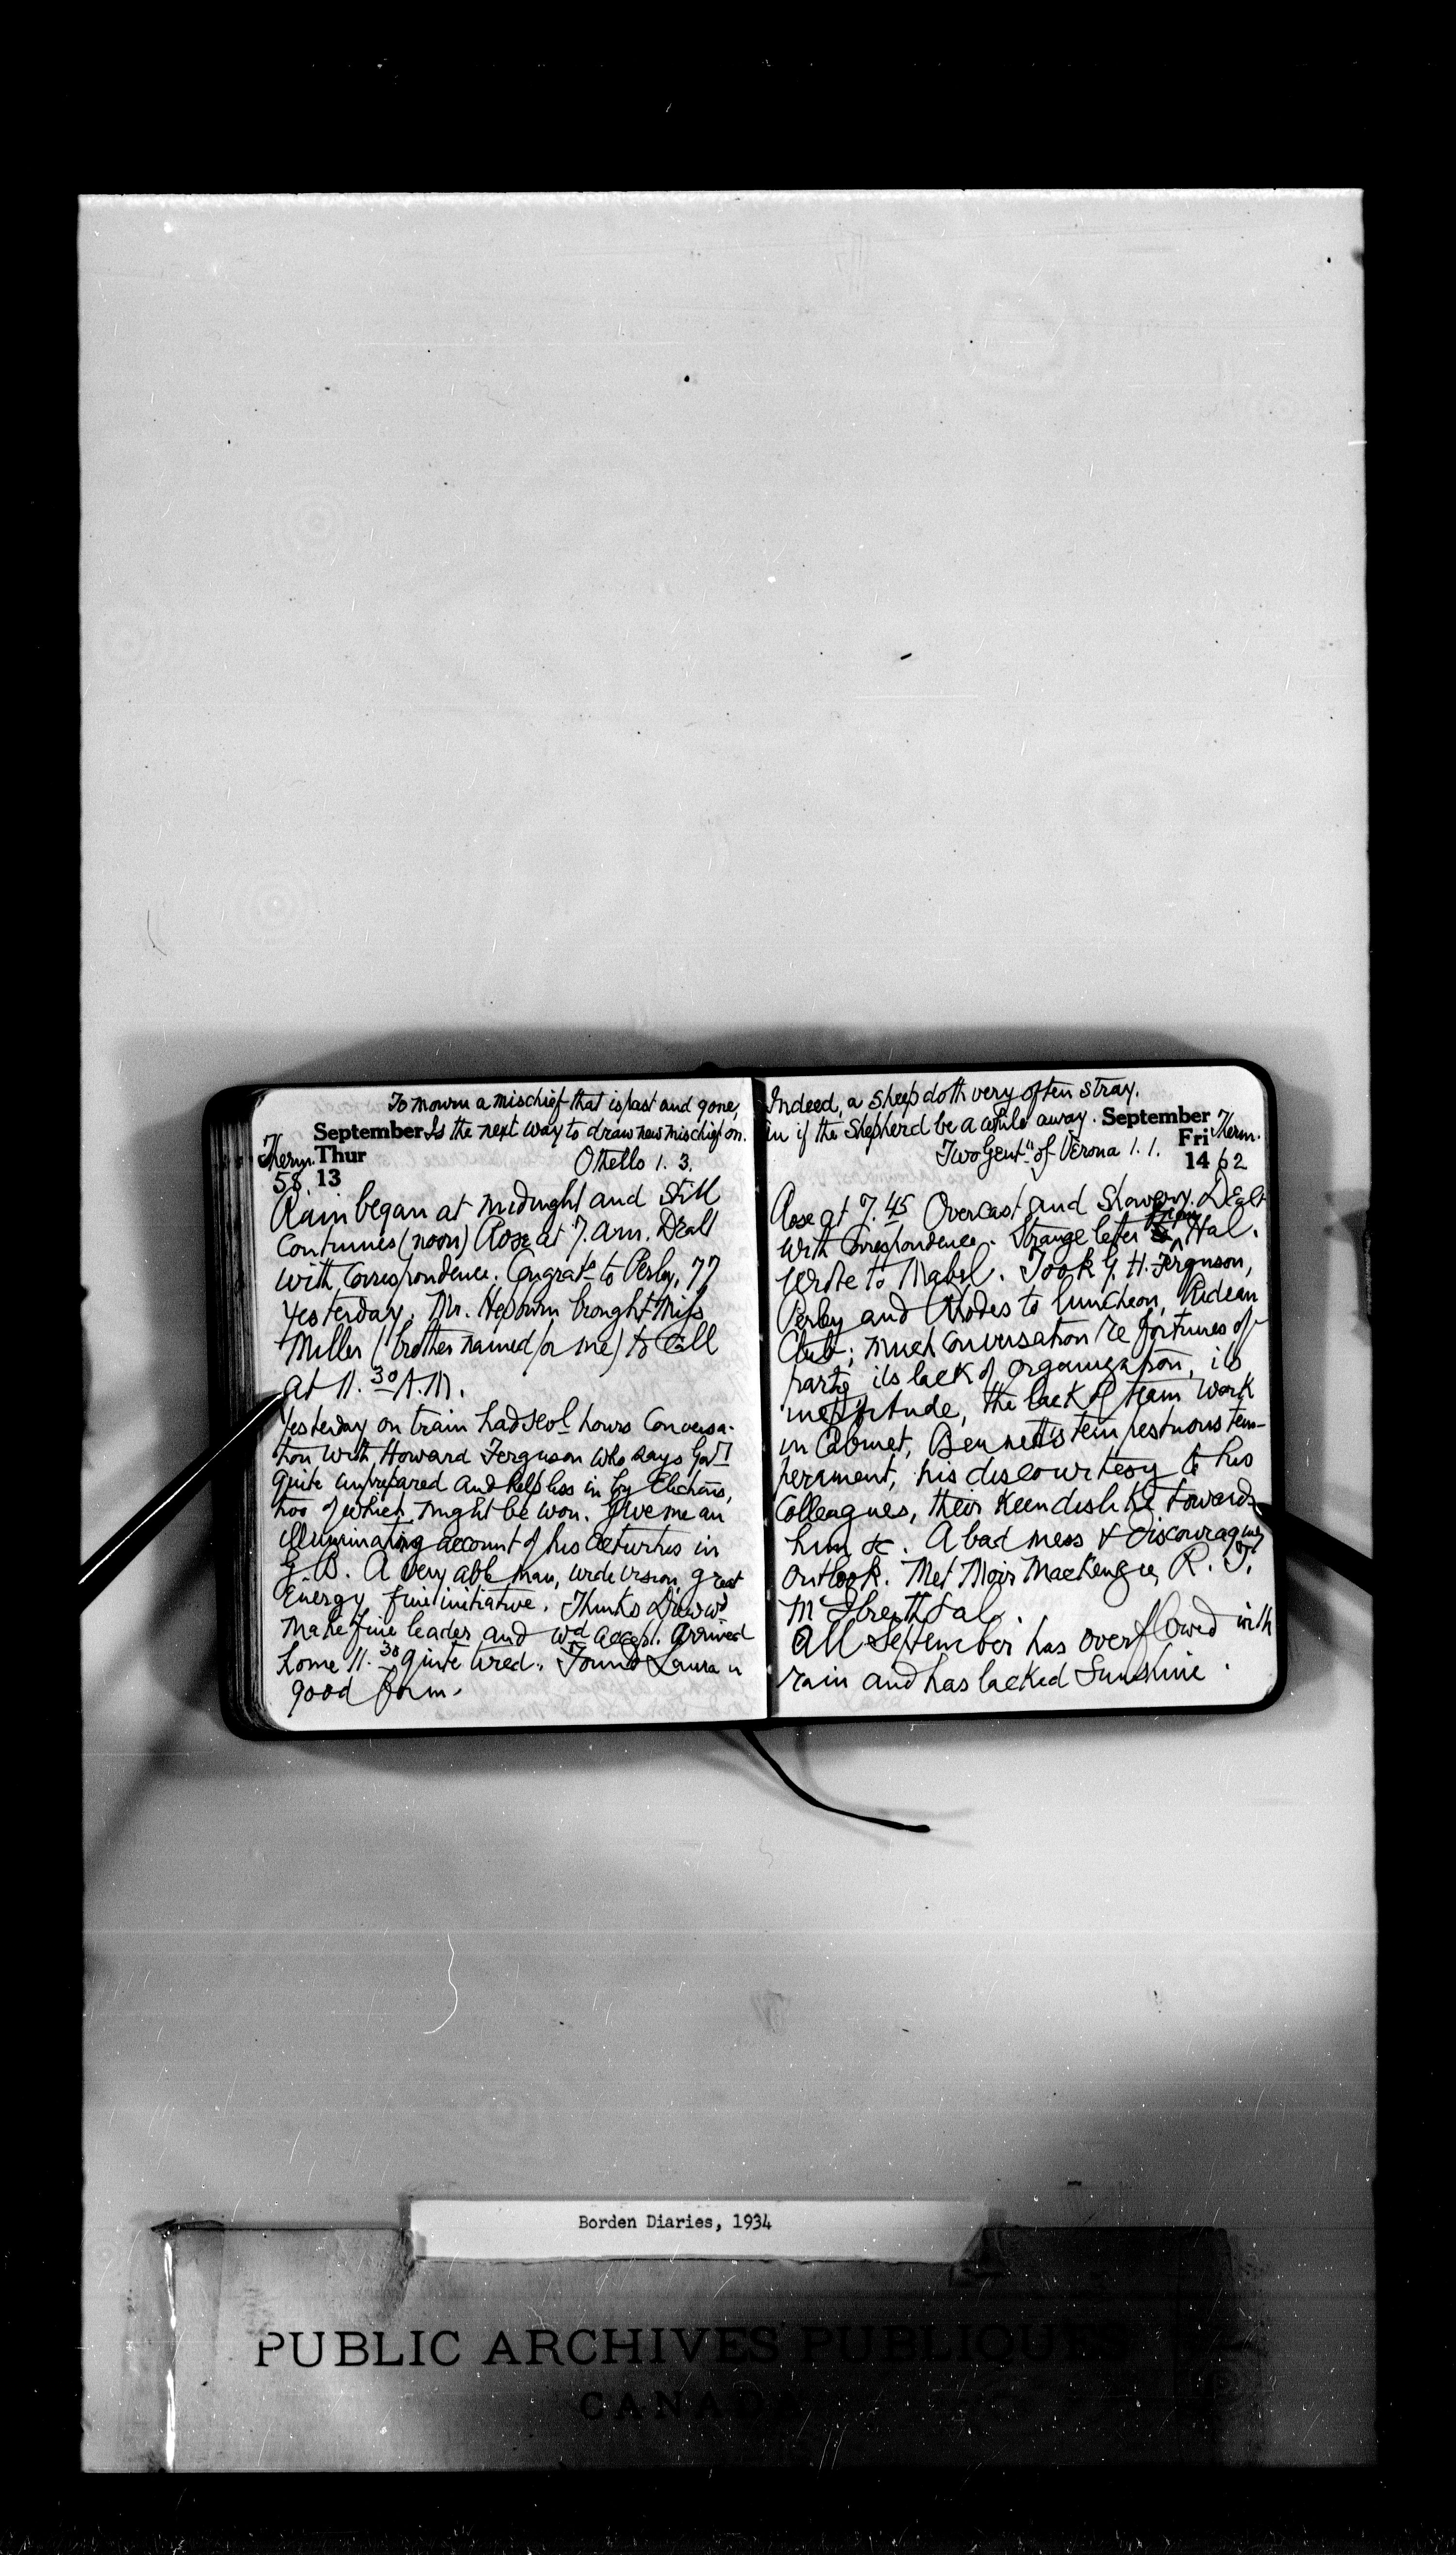 To mourn a mischief that is past and gone,
September Is the next way to draw new mischief on.
Therm. Thur Othello 1. 3.
58. 13
Rain began at midnight and still
continues (noon) Rose at 7. am. Dealt
with correspondence. Congrats to Perley, 77
yesterday. Mr. Hepburn brought Miss
Miller (brother named for me) to call
at 11.30 A.M.
Yesterday on train had sevl hours conversa-
tion with Howard Ferguson who says Govt
quite unprepared and helpless in by Elections,
two of which might be won. Give me an
illuminating account of his activities in
G.B. A very able man, wide vision, great
energy, fine initiative. Thinks Drew wd
make fine leader and wd accept. Arrived
home 11.30 quite tired. Found Laura in
good form.
Indeed, a sheep doth very often stray.
An if the Shepherd be a while away. September
Fri Therm.
Two Gentn of Verona 1. 1. 14 62
Rose at 7.45 Overcast and Showery. Dealt
with correspondence. Strange letter from Hal.
Wrote to Mabel. Took G. H. Ferguson,
Perley and Rhodes to luncheon, Rideau
Club; much conversation re fortunes of
party its lack of organization, its
ineptitude, the lack of team work
in Cabinet, Bennett's tempestuous tem-
perament, his discourtesy to his
colleagues, their keen dislike towards
him &c. A bad mess & discouraging
outlook. Met Moir Mackenzie, R. J.
All September has overflowed with
rain and has lacked Sunshine.
Borden Diaries, 1934
PUBLIC ARCHIVES PUBLIQUES
CANADA